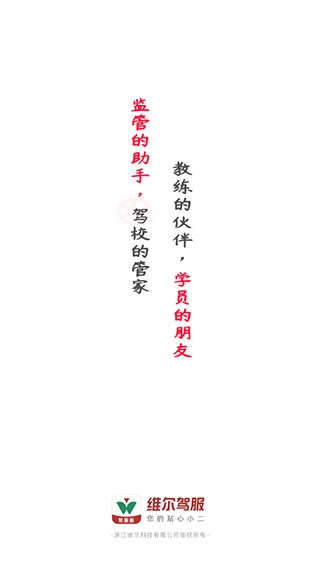 监管的助手，驾校的管家
教练的伙伴，学员的朋友
驾服
维尔驾服
您的贴心小二
-浙江维尔科技有限公司版权所有-